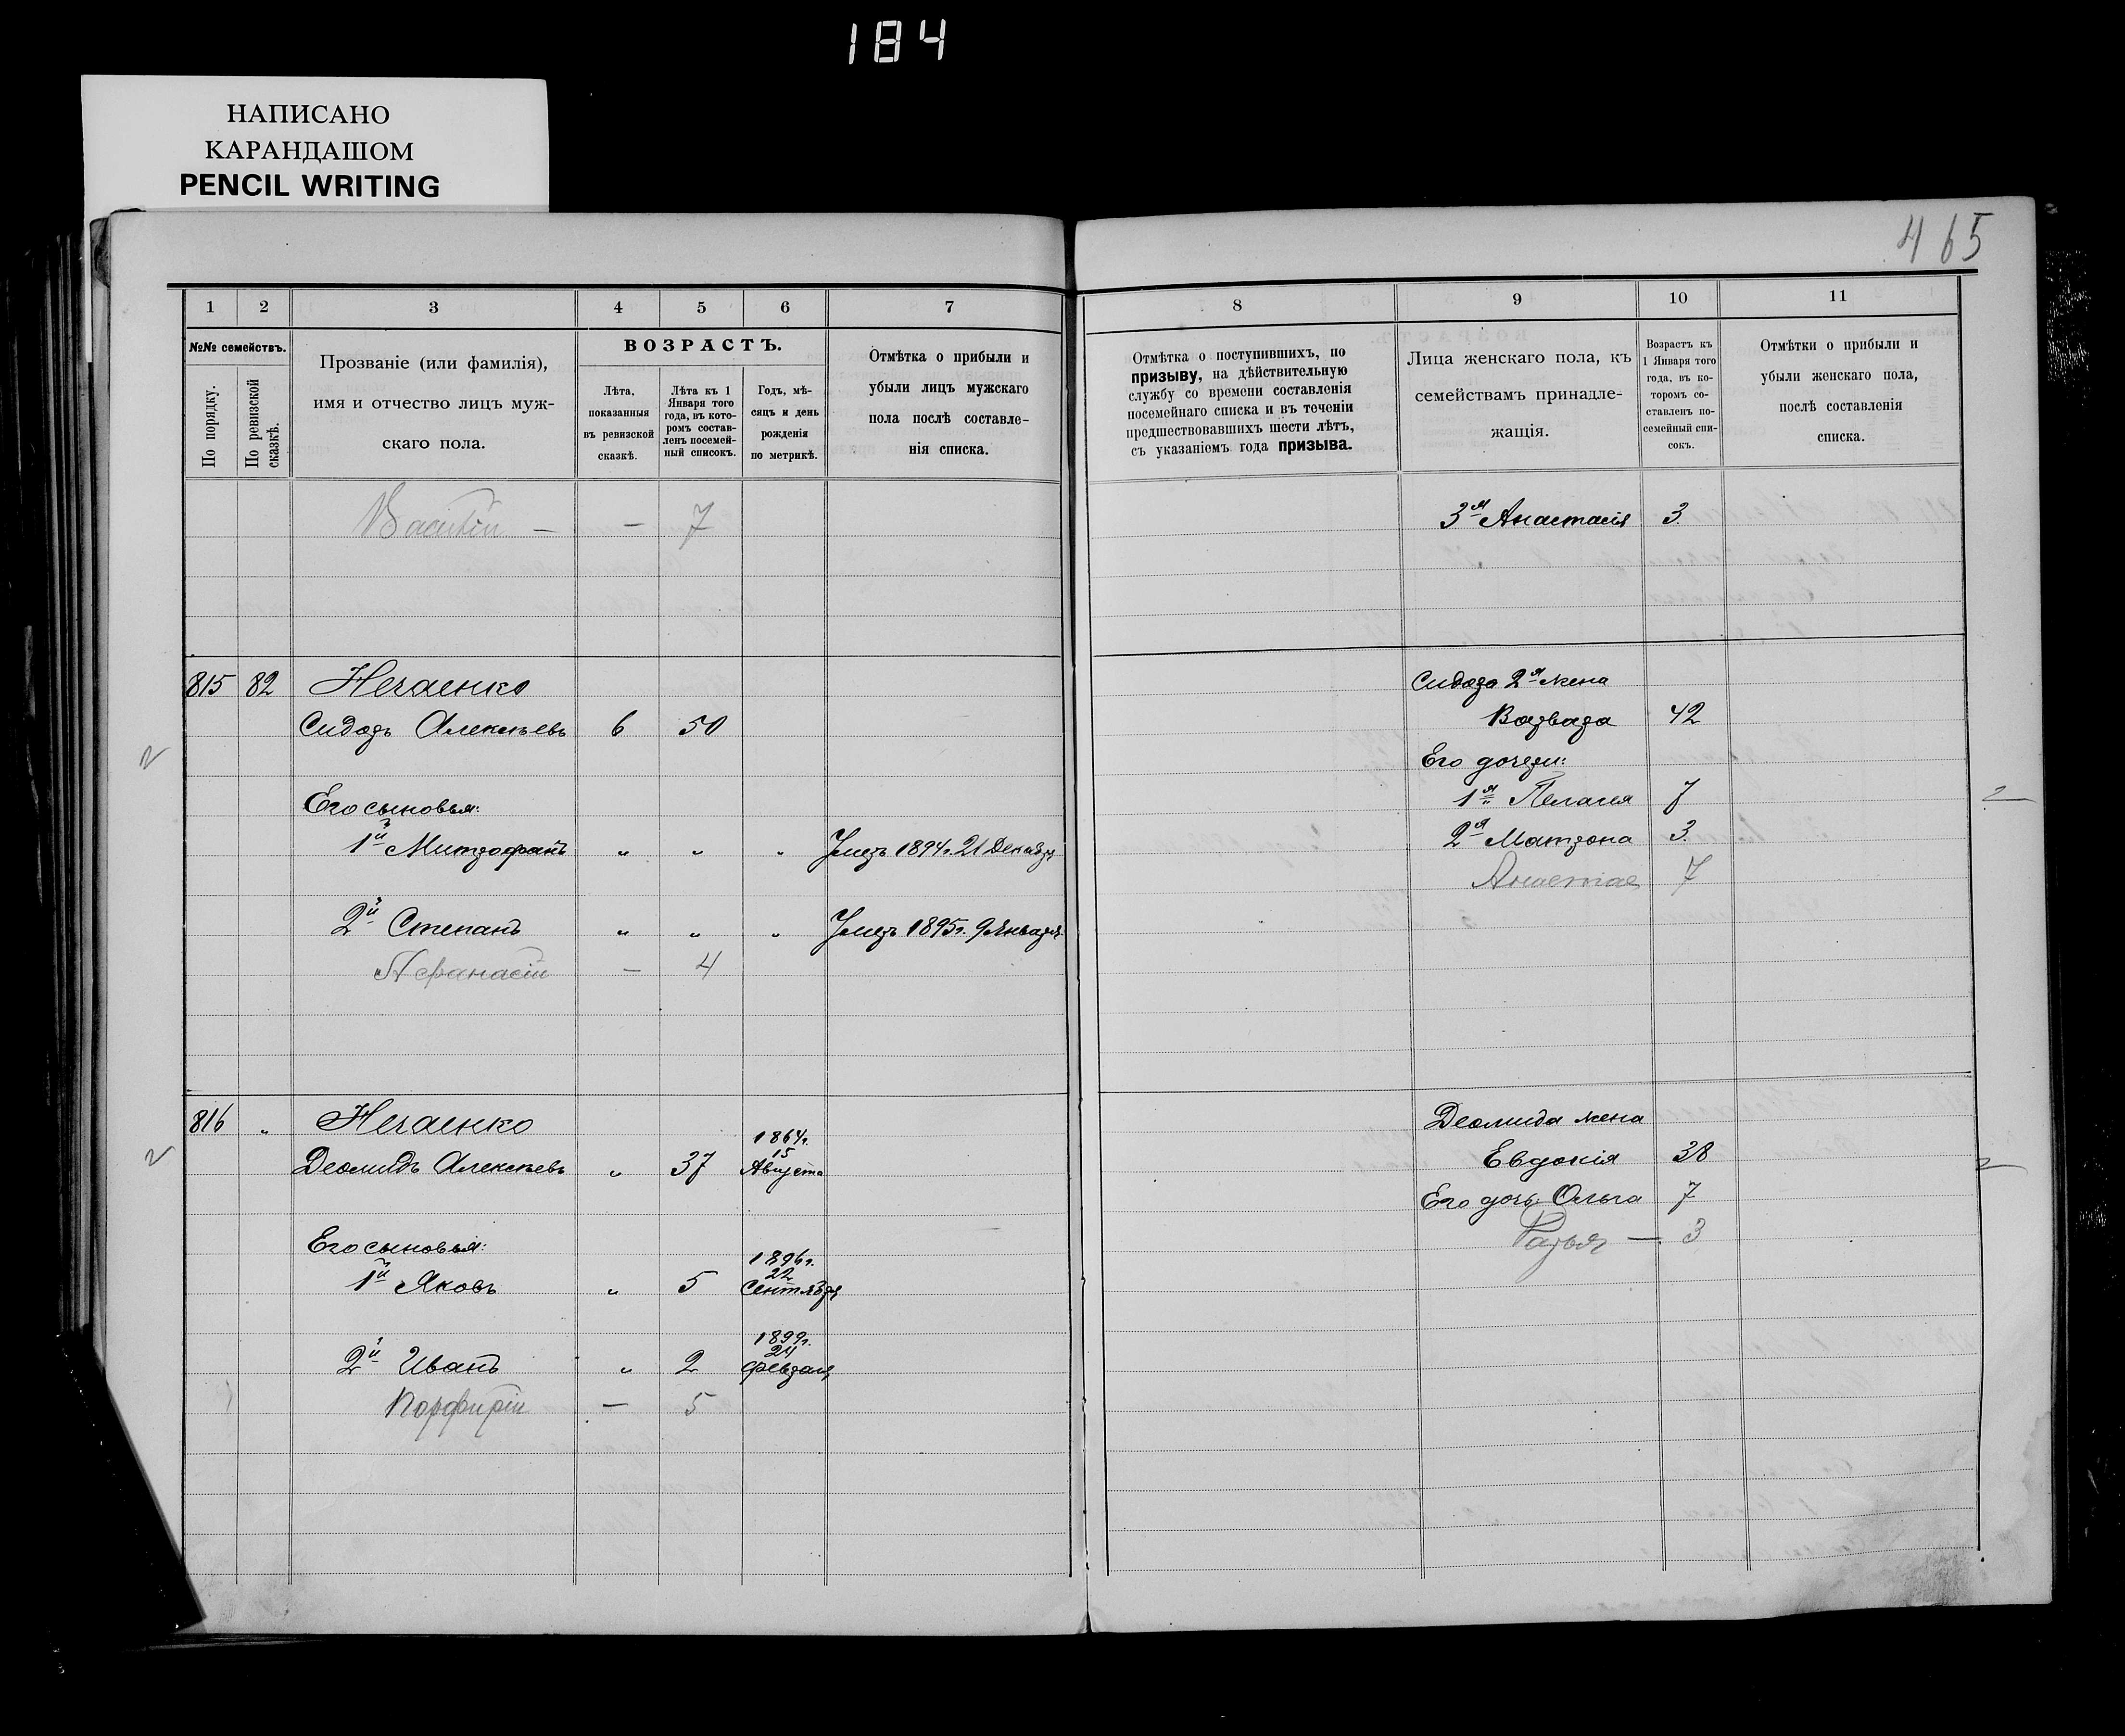 184
НАПИСАНО
КАРАНДАШОМ
PENCIL WRITING
465
1 2 3 4 5 6 7
№№ семействъ.
По порядку.
По ревизской сказкѣ.
Прозваніе (или фамилія),
имя и отчество лицъ муж-
скаго пола.
ВОЗРАСТЪ.
Лѣта,
показанныя
въ ревизской
сказкѣ.
Лѣта къ 1
Января того
года, въ кото-
ромъ состав-
ленъ посемей-
ный списокъ.
Годъ, мѣ-
сяцъ и день
рожденія
по метрикѣ.
Отмѣтка о прибыли и
убыли лицъ мужскаго
пола послѣ составле-
нія списка.
Василій — — 7
815 82 Нечаенко
Сидоръ Алексѣевъ 6 50
Его сыновья:
1й Митрофанъ „ „ „ Умеръ 1894г. 21 Декабря
2й Степанъ „ „ „ Умеръ 1895г. 9 Января
Афанасій — 4
816 „ Нечаенко
Деомидъ Алексѣевъ „ 37 1864г. 15 Августа
Его сыновья:
1й Яковъ „ 5 1896г. 22 Сентября
2й Иванъ „ 2 1899г. 24 Февраля
Порфирій — 5
8 9 10 11
Отмѣтка о поступившихъ, по
призыву, на дѣйствительную
службу со времени составленія
посемейнаго списка и въ теченіи
предшествовавшихъ шести лѣтъ,
съ указаніемъ года призыва.
Лица женскаго пола, къ
семействамъ принадле-
жащія.
Возрастъ къ
1 Января того
года, въ ко-
торомъ со-
ставленъ по-
семейный спи-
сокъ.
Отмѣтки о прибыли и
убыли женскаго пола,
послѣ составленія
списка.
3я Анастасія 3.
Сидора 2я жена
Варвара 42
Его дочери:
1я Пелагея 7
2я Матрона 3.
Анастас 7
Деомида жена
Евдокія 38
Его дочь Ольга 7
— 3